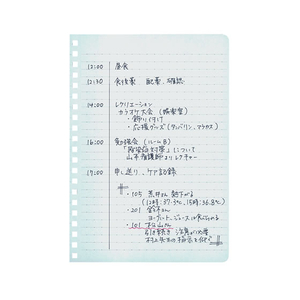 12:00 昼食
12:30 食後薬 配薬、確認
14:00 レクリエーション
カラオケ大会（娯楽室）
・飾り付け
・応援グッズ（タンバリン、マラカス）
16:00 勉強会（ルームB）
「感染症対策」について
山本看護師よりレクチャー
17:00 申し送り、ケア記録
・105 荒井さん 熱下がる
（12時:37.5℃、15時:36.8℃）
・201 鈴木さん
ヨーグルト、ジュースは食べられる
・101 村山さん
引き続き 注意が必要